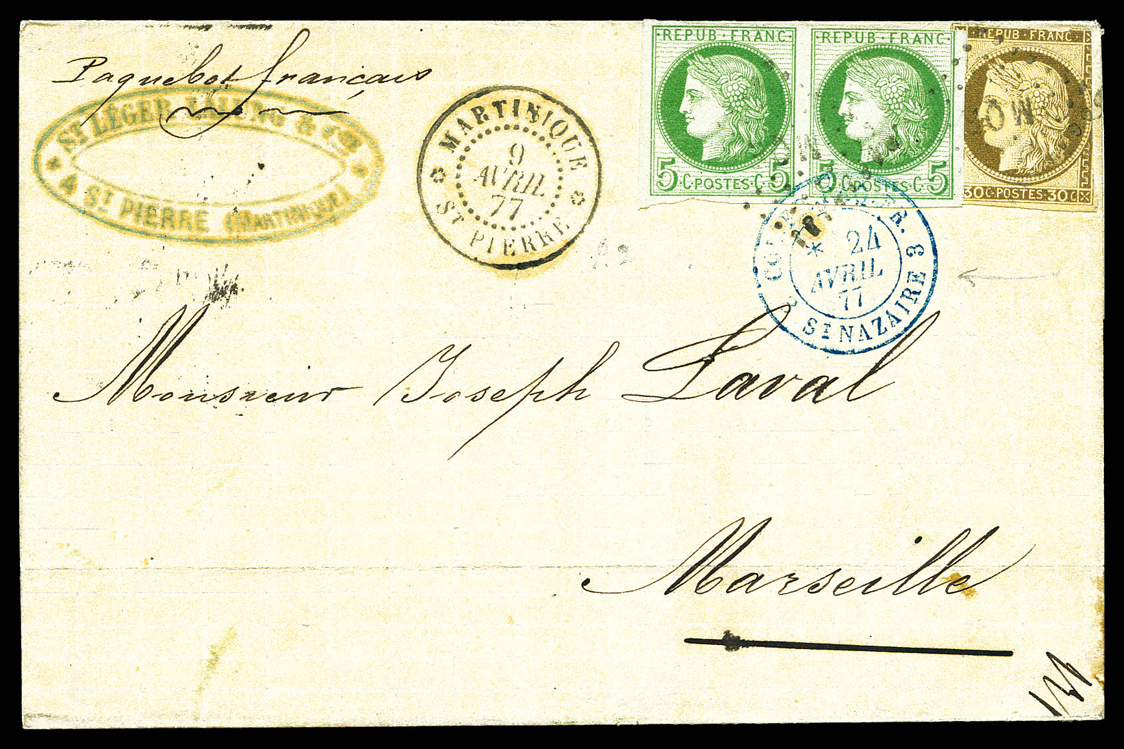 Paquebot français
ST LÉGER & CIE
A ST PIERRE (MARTINIQUE)
MARTINIQUE
9
AVRIL
77
ST PIERRE
REPUB FRANC
5 C POSTES C 5
REPUB FRANC
5 C POSTES C 5
REPUB FRANC
30 C POSTES 30 C
24
AVRIL
77
2 ST NAZAIRE 3
Monsieur Joseph Laval
Marseille